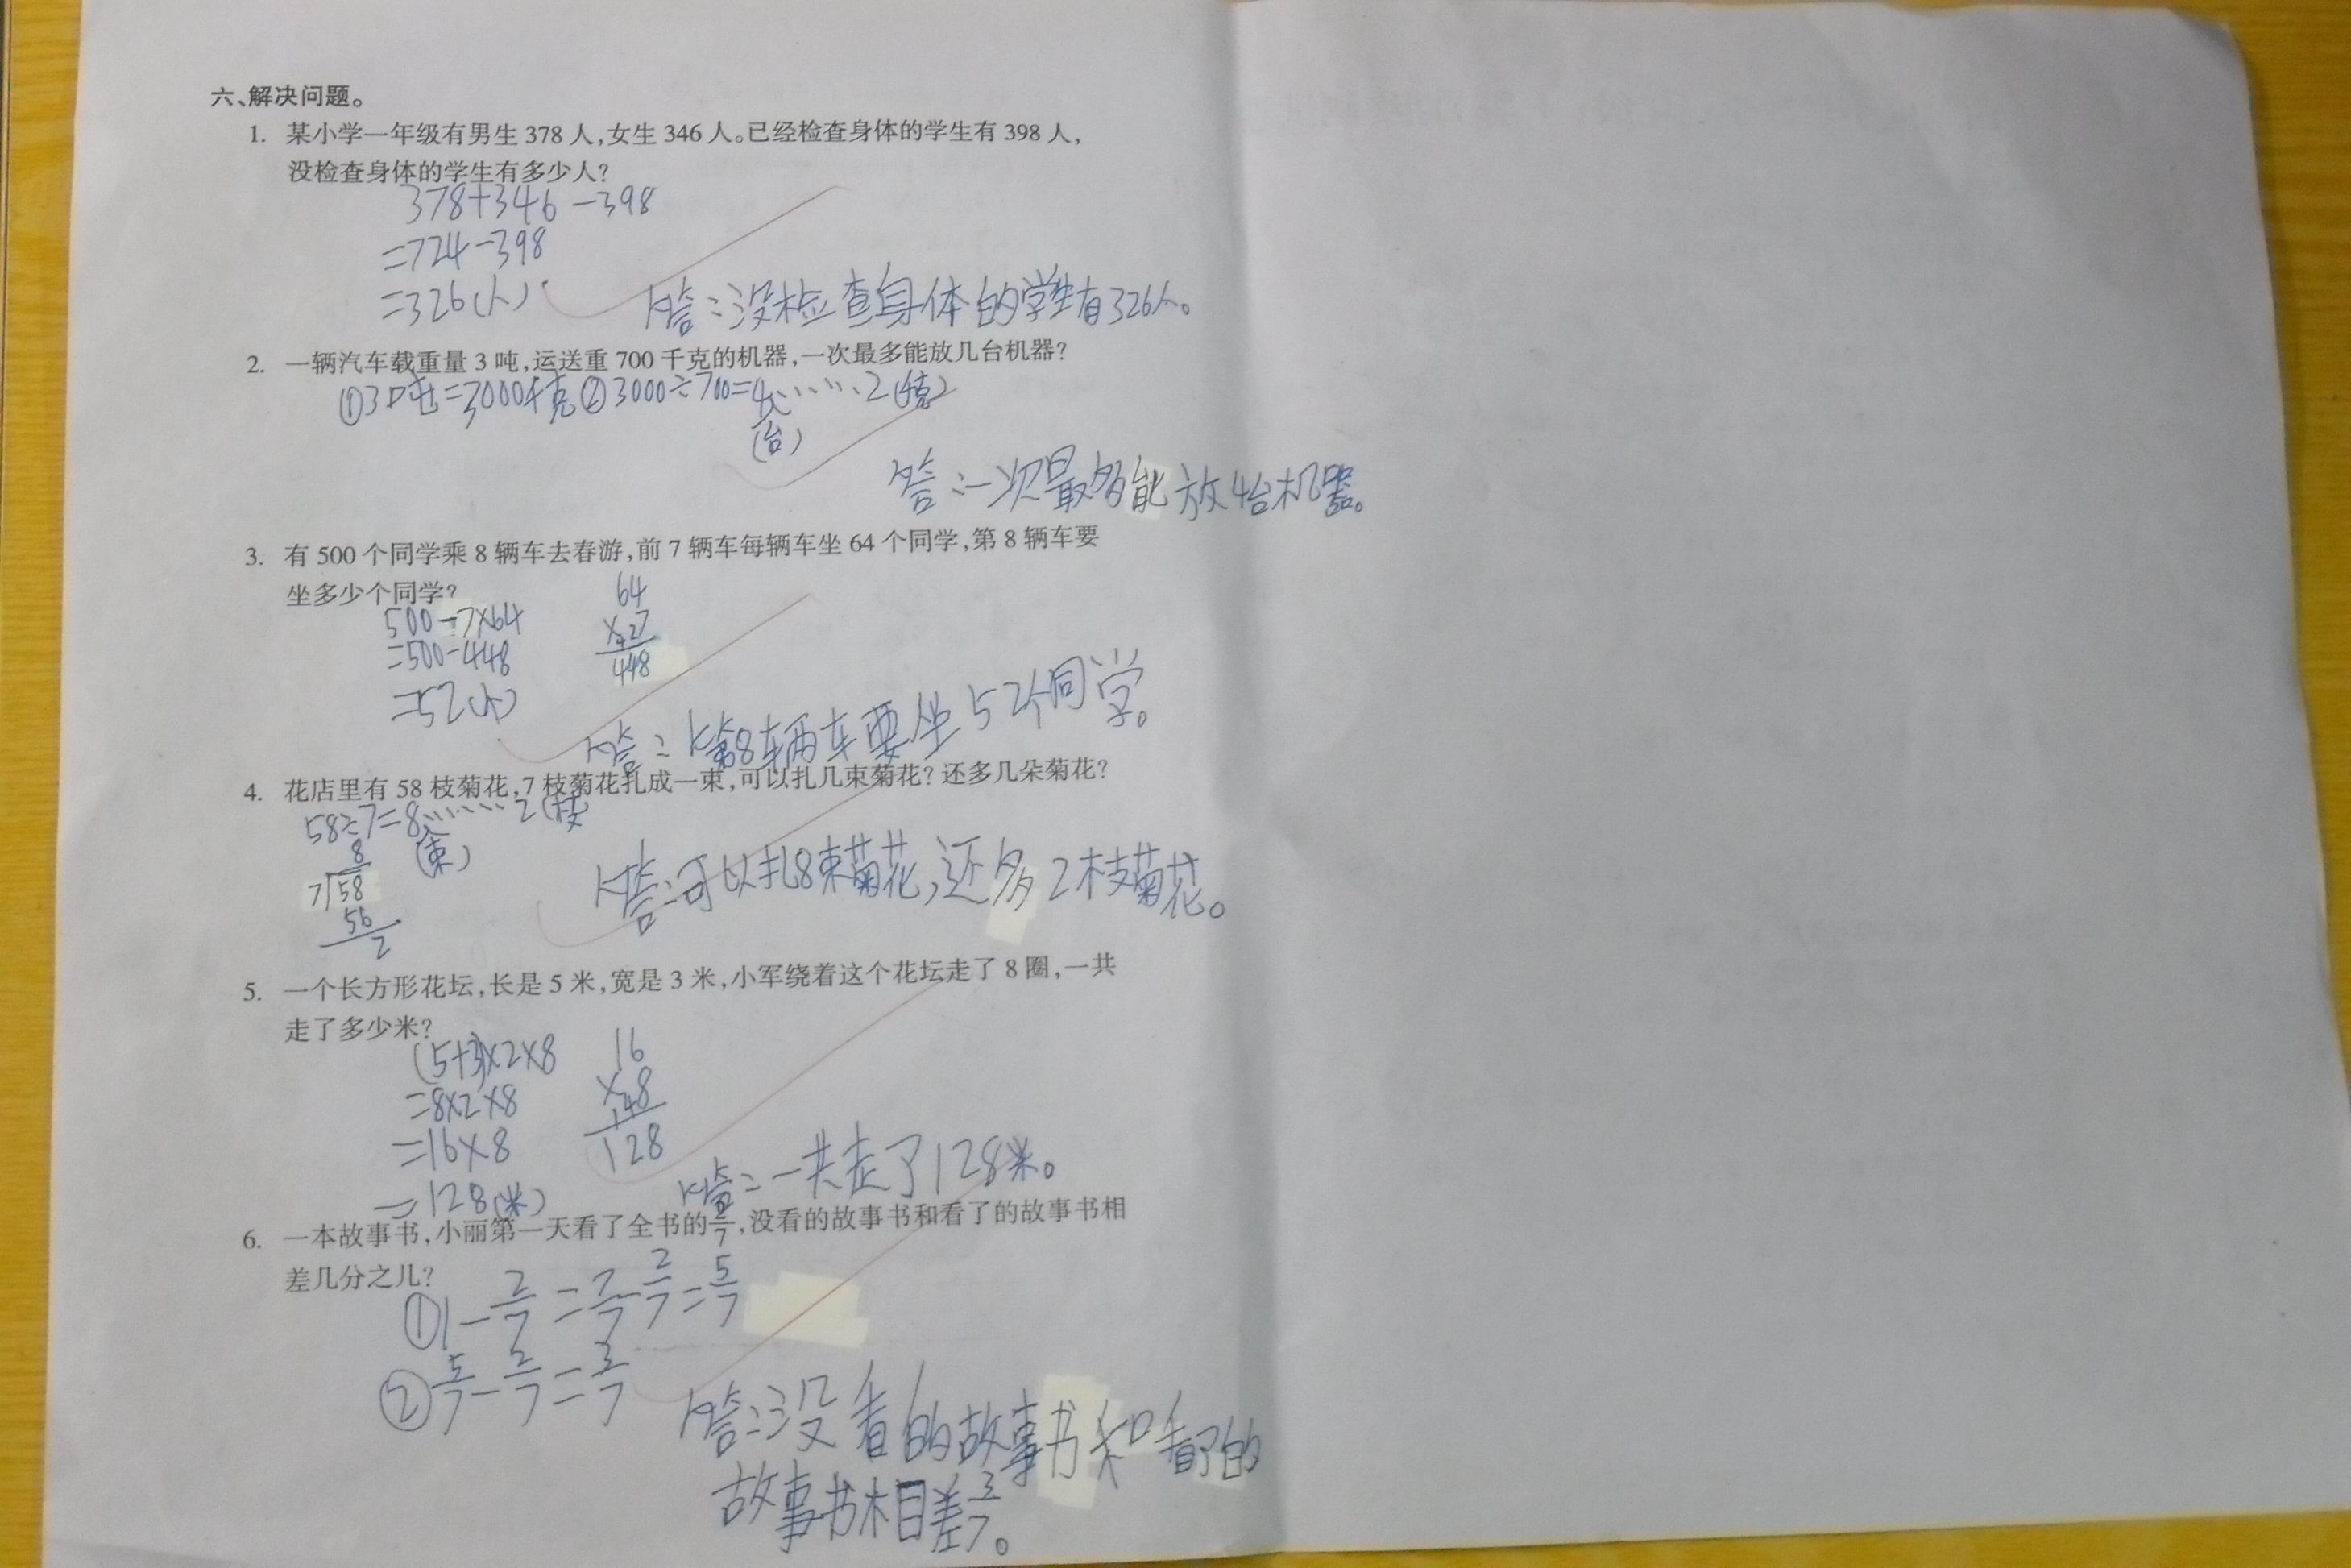 六、解决问题。
1. 某小学一年级有男生 378 人,女生 346 人。已经检查身体的学生有 398 人,
没检查身体的学生有多少人?
378+346-398
=724-398
=326(人)
答:没检查身体的学生有326人。
2. 一辆汽车载重量 3 吨,运送重 700 千克的机器,一次最多能放几台机器?
①3吨=3000千克 ②3000÷700=4……2(千克)
(台)
答:一次最多能放4台机器。
3. 有 500 个同学乘 8 辆车去春游,前 7 辆车每辆车坐 64 个同学,第 8 辆车要
坐多少个同学?
500-7×64
=500-448
=52(个)
64
×27
448
答:第8辆车要坐52个同学。
4. 花店里有 58 枝菊花,7 枝菊花扎成一束,可以扎几束菊花? 还多几朵菊花?
58÷7=8……2(枝)
(束)
8
7 58
56
2
答:可以扎8束菊花,还多2枝菊花。
5. 一个长方形花坛,长是 5 米,宽是 3 米,小军绕着这个花坛走了 8 圈,一共
走了多少米?
(5+3)×2×8
=8×2×8
=16×8
=128(米)
16
×48
128
答:一共走了128米。
6. 一本故事书,小丽第一天看了全书的2/7,没看的故事书和看了的故事书相
差几分之几?
①1-2/7=7/7-2/7=5/7
②5/7-2/7=3/7
答:没看的故事书和看了的
故事书相差3/7。